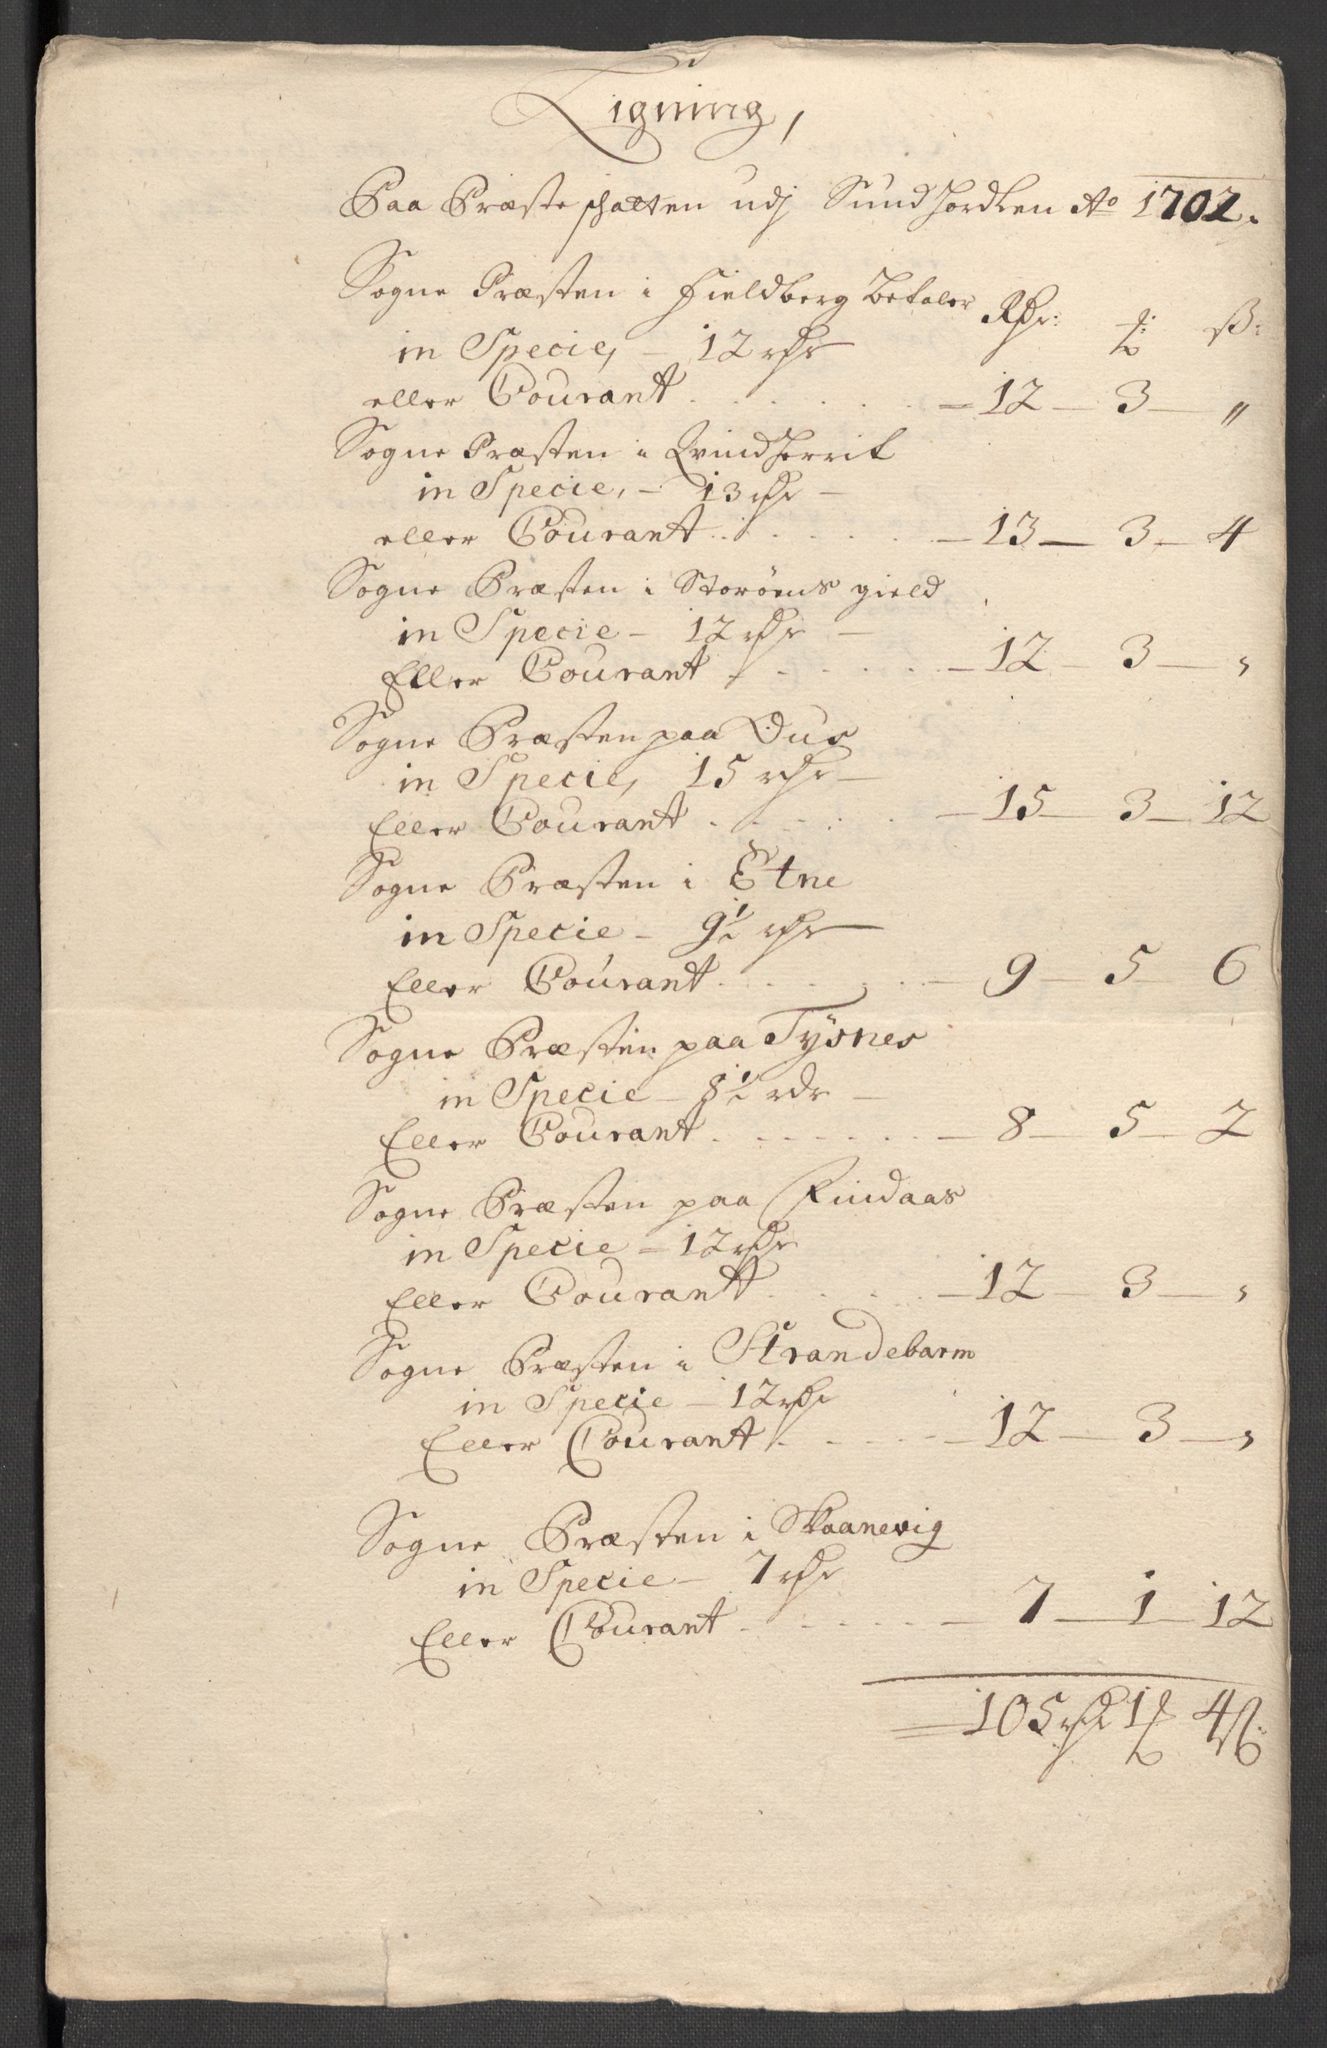 Ligning,
Paa Præste schatten udj Sundhordlen Ao 1702.
Sogne Præsten i Fieldberg betaler
Rdr: ß:
in Specie, - 12 rdr
eller Courant . . . . . . - 12 - 3 - "
Sogne Præsten i Qvindherrit
in Specie, - 13 rdr -
eller Courant . . . . . - 13 - 3 - 4
Sogne Præsten i Storøens gield
in Specie - 12 rdr -
Eller Courant . . . . . - 12 - 3 - "
Sogne Præsten paa Ous
in Specie, 15 rdr -
Eller Courant . . . . . - 15 - 3 - 12
Sogne Præsten i Etne
in Specie - 9½ rdr -
Eller Courant . . . . . - 9 - 5 - 6
Sogne Præsten paa Tÿsnes
in Specie - 8½ rdr -
Eller Courant . . . . . - 8 - 5 - 2
Sogne Præsten paa Findaas
in Specie - 12 rdr
Eller Courant . . . . - 12 - 3 - "
Sogne Præsten i Strandebarm
in Specie - 12 rdr
Eller Courant . . . . - 12 - 3 - "
Sogne Præsten i Skaanevig
in Specie - 7 rdr
Eller Courant . . . . . - 7 - 1 - 12
105 rdr 1 4 ß